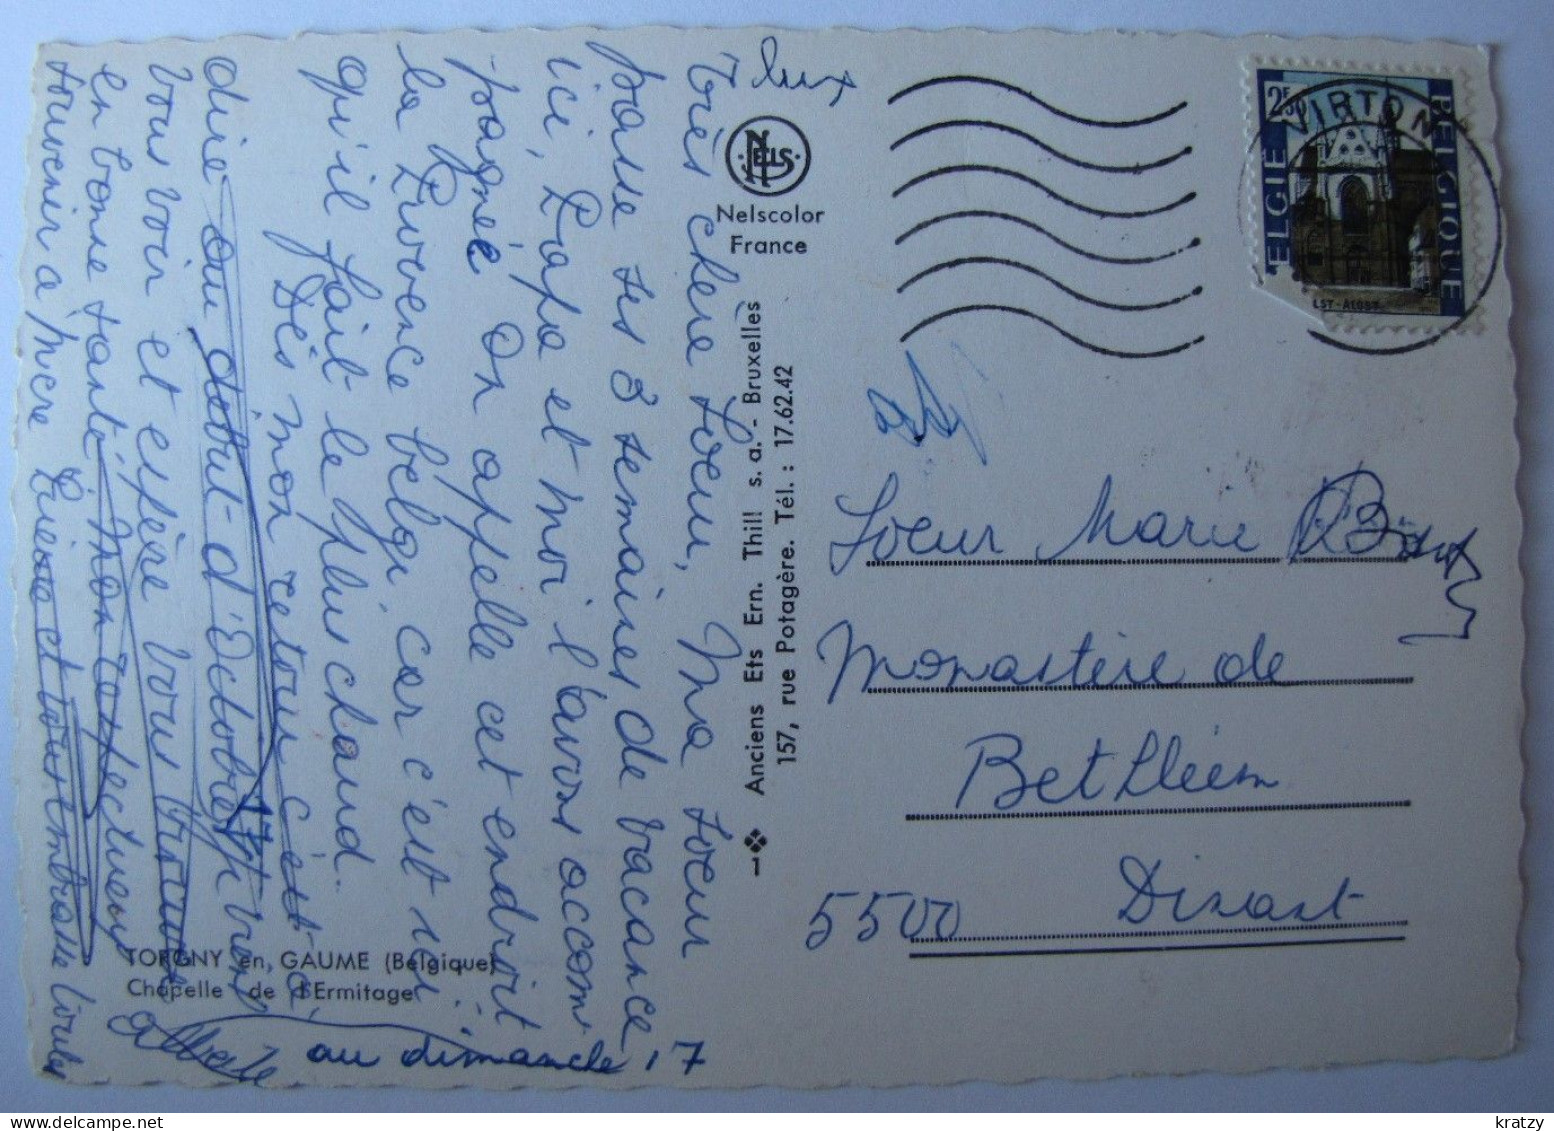 lux
Très chère Soeur, Ma soeur
passe ses 3 semaines de vacance
ici, Papa et moi l'avons accom
pagnée On appelle cet endroit
la Provence belge, car c'est ici
qu'il fait le plus chaud.
Dès mon retour c'est à
dire ou début d'Octobre je viens
vous voir et espère vous trouver
en bonne santé. Mon respectueux
souvenir à Mère Prieure et tout
au dimanche 17
NELS
Nelscolor
France
Anciens Ets Ern. Thill s. a. - Bruxelles
157, rue Potagère. Tél. : 17.62.42
TORGNY en GAUME (Belgique)
Chapelle de l'Ermitage
VIRTON
2F50
BELGIE
BELGIQUE
Soeur Marie
Monastère de
Bethléem
5500 Dinant
kratzy